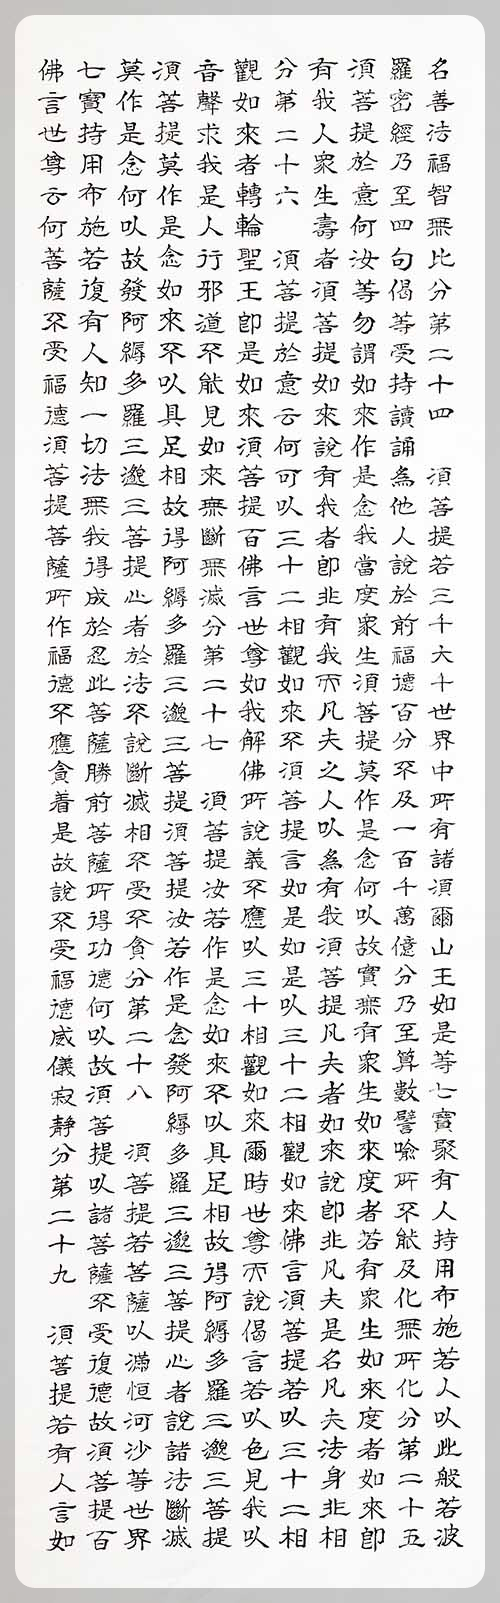 名善法福智無比分第二十四　須菩提若三千大千世界中所有諸須爾山王如是等七寶聚有人持用布施若人以此般若波
羅密經乃至四句偈等受持讀誦為他人說於前福德百分不及一百千萬億分乃至算數譬喻所不能及化無所化分第二十五
須菩提於意何汝等勿謂如來作是念我當度眾生須菩提莫作是念何以故實無有眾生如來度者若有眾生如來度者如來即
有我人眾生壽者須菩提如來說有我者即非有我而凡夫之人以為有我須菩提凡夫者如來說即非凡夫是名凡夫法身非相
分第二十六　須菩提於意云何可以三十二相觀如來不須菩提言如是如是以三十二相觀如來佛言須菩提若以三十二相
觀如來者轉輪聖王即是如來須菩提百佛言世尊如我解佛所說義不應以三十相觀如來爾時世尊而說偈言若以色見我以
音聲求我是人行邪道不能見如來無斷無滅分第二十七　須菩提汝若作是念如來不以具足相故得阿縟多羅三邈三菩提
須菩提莫作是念如來不以具足相故得阿縟多羅三邈三菩提須菩提汝若作是念發阿縟多羅三邈三菩提心者說諸法斷滅
莫作是念何以故發阿縟多羅三邈三菩提心者於法不說斷滅相不受不貪分第二十八　須菩提若菩薩以滿恒河沙等世界
七寶持用布施若復有人知一切法無我得成於忍此菩薩勝前菩薩所得功德何以故須菩提以諸菩薩不受復德故須菩提百
佛言世尊云何菩薩不受福德須菩提菩薩所作福德不應貪着是故說不受福德威儀寂靜分第二十九　須菩提若有人言如